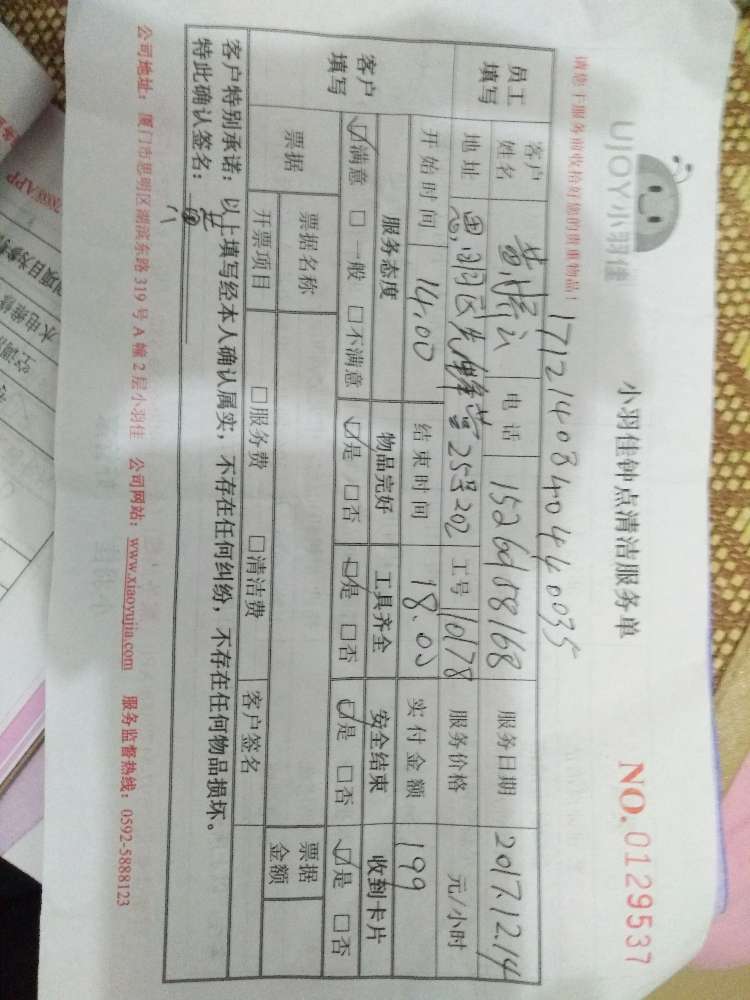 UJOY小羽佳
小羽佳钟点清洁服务单
NO.0129537
请您于服务前收拾好您的贵重物品!
171214084044 0035
员工填写
客户姓名 电话 15260158168 服务日期 2017.12.14
地址 思明区先锋营25号202 工号 10178 服务价格 元/小时
开始时间 14.00 结束时间 18.00 实付金额 199
客户填写
服务态度 物品完好 工具齐全 安全结束 收到卡片
☑满意 □一般 □不满意 ☑是 □否 ☑是 □否 ☑是 □否 ☑是 □否
票据 票据名称 票据金额
开票项目 □服务费 □清洁费 客户签名
客户特别承诺:以上填写经本人确认属实,不存在任何纠纷,不存在任何物品损坏。
特此确认签名:
公司地址:厦门市思明区湖滨东路319号A幢2层小羽佳 公司网站:www.xiaoyujia.com 服务监督热线:0592-5888123
水电维修